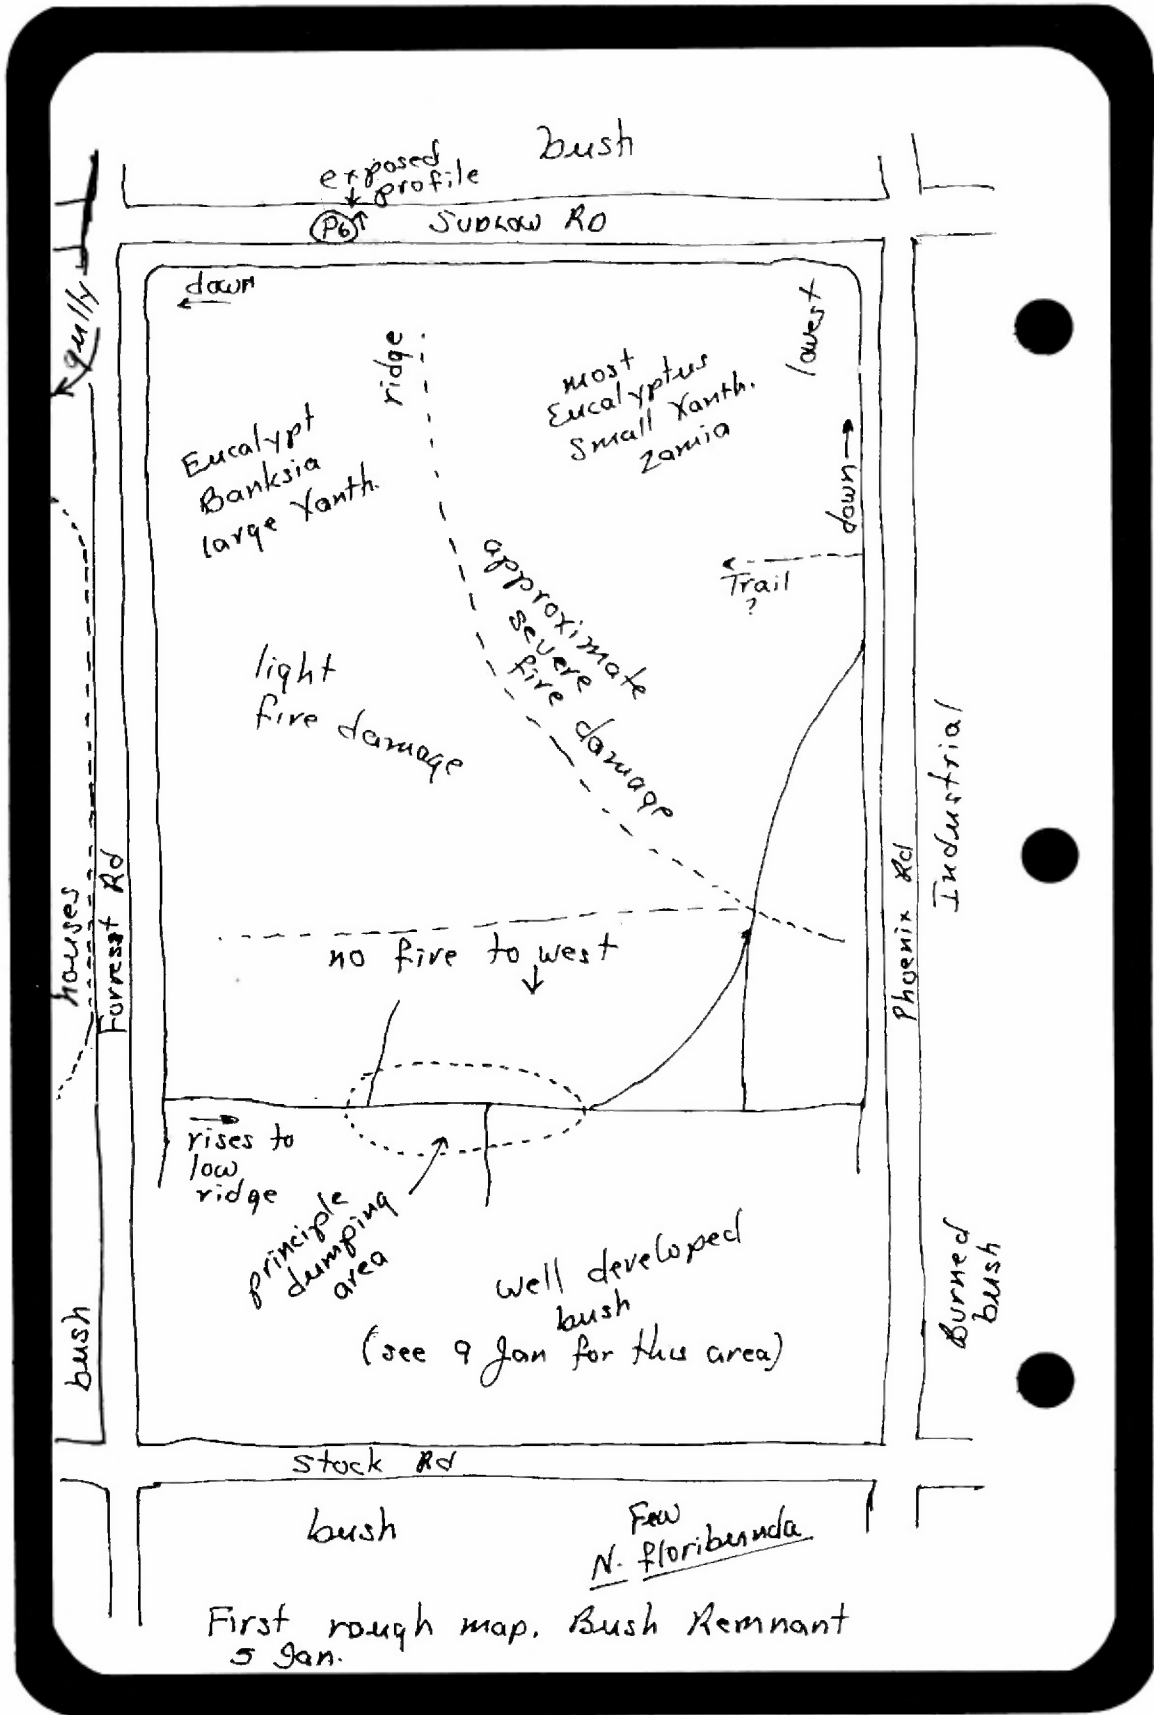 bush
exposed
profile
P6
SUDLOW RD
down
gully
ridge
lowest
most
Eucalyptus
Small Xanth.
Zamia
Eucalypt
Banksia
large Xanth.
down
approximate
severe
fire damage
Trail
?
light
fire damage
Industrial
houses
Forrest Rd
Phoenix Rd
no fire to west
rises to
low
ridge
principle
dumping
area
well developed
bush
(see 9 Jan for this area)
Burned
bush
bush
Stock Rd
bush
Few
N. floribunda
First rough map. Bush Remnant
5 Jan.